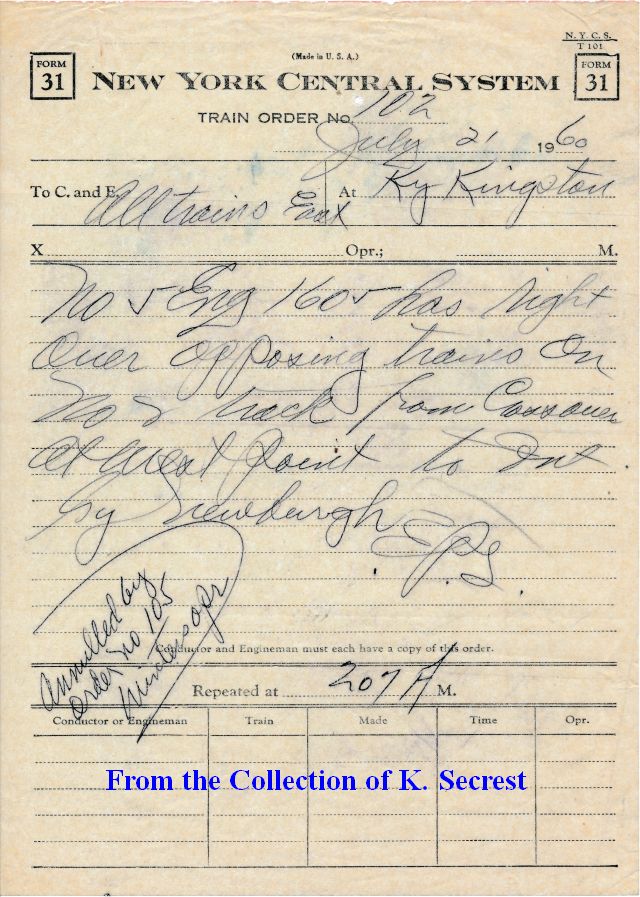 N. Y. C. S.
T 101
(Made in U. S. A.)
FORM 31
NEW YORK CENTRAL SYSTEM
FORM 31
TRAIN ORDER No. 102
July 21 1960
To C. and E. All trains East At Ky Kingston
X Opr.; M.
No 5 Eng 1605 has right
Over opposing trains on
No 2 track from Crossover
At West Point to Int
Sy Newburgh
E.P.S.
Annulled by
Order no 105
opr
Conductor and Engineman must each have a copy of this order.
Repeated at 207 A M.
Conductor or Engineman Train Made Time Opr.
From the Collection of K. Secrest